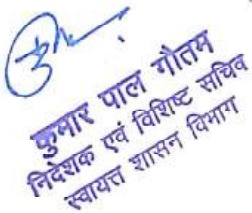 कुमार पाल गौतम
निदेशक एवं विशिष्ट सचिव
स्वायत्त शासन विभाग